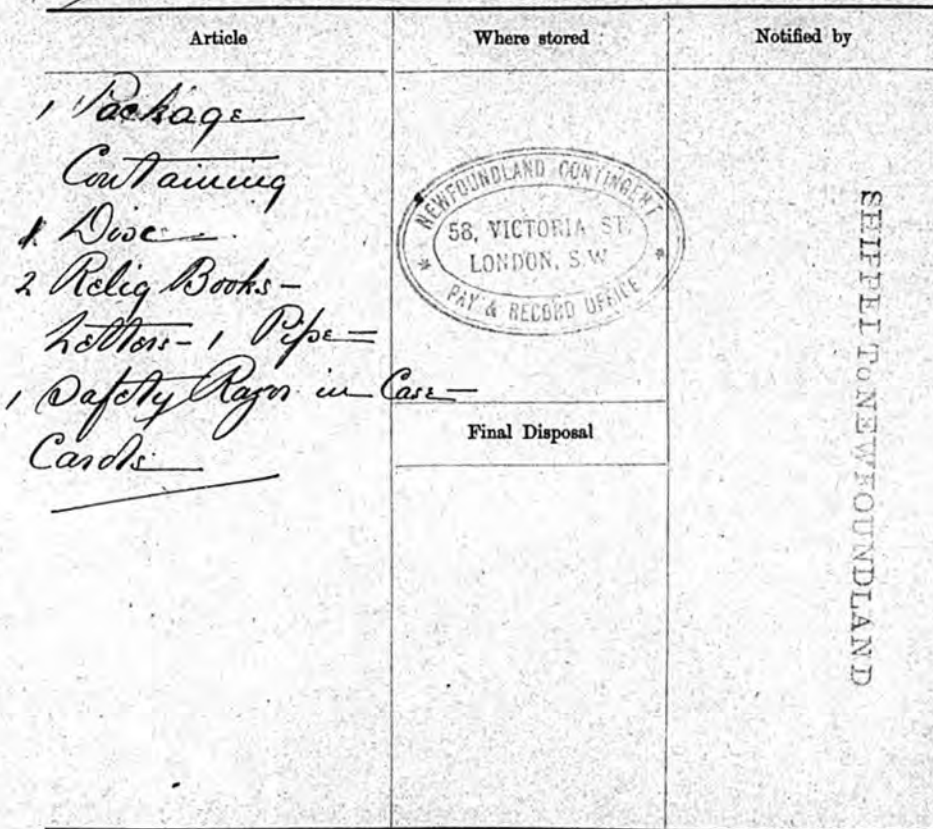 Article
Where stored
Notified by
1 Package
Containing
1 Disc
2 Relig Books -
Letters - 1 Pipe -
1 Safety Razor in Case -
Cards
NEWFOUNDLAND CONTINGENT
58, VICTORIA ST.
LONDON, S.W
* PAY & RECORD OFFICE *
Final Disposal
NEWFOUNDLAND